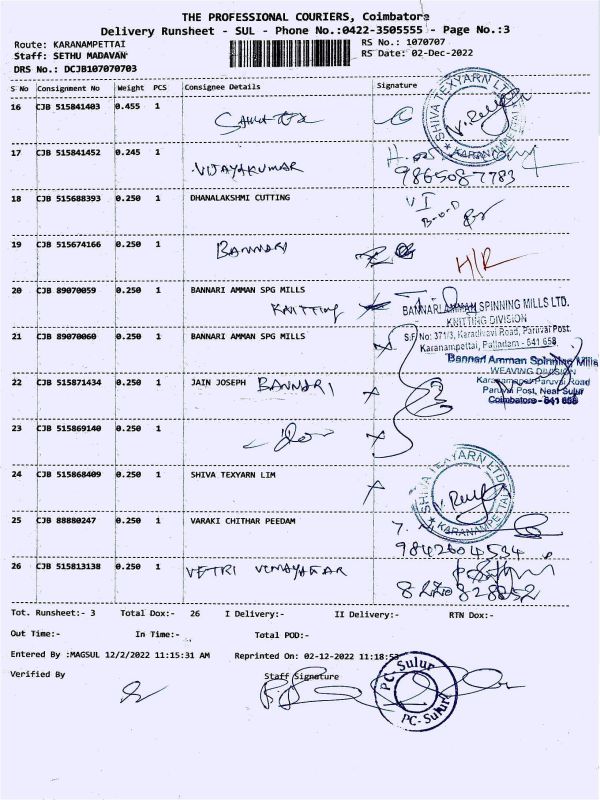 THE PROFESSIONAL COURIERS, Coimbatore
Delivery Runsheet - SUL - Phone No.:0422-3505555 - Page No.:3
Route: KARANAMPETTAI RS No.: 1070707
Staff: SETHU MADAVAN RS Date: 02-Dec-2022
DRS No.: DCJB107070703
S No Consignment No Weight PCS Consignee Details Signature
16 CJB 515841403 0.455 1
SHIVA TEXYARN LTD KARANAMPETTAI
17 CJB 515841452 0.245 1 VIJAYAKUMAR
9865087783
18 CJB 515688393 0.250 1 DHANALAKSHMI CUTTING
19 CJB 515674166 0.250 1 BANNARI H/R
20 CJB 89070059 0.250 1 BANNARI AMMAN SPG MILLS
KNITTING
BANNARI AMMAN SPINNING MILLS LTD.
KNITTING DIVISION
S.F. No: 371/3, Karadivavi Road, Paruvai Post.
Karanampettai, Palladam - 641 658
21 CJB 89070060 0.250 1 BANNARI AMMAN SPG MILLS
Bannari Amman Spinning Mills
WEAVING DIVISION
Karanampet-Paruvai Road
Paruvai Post, Near Sulur
Coimbatore - 641 658
22 CJB 515871434 0.250 1 JAIN JOSEPH BANNARI
23 CJB 515869140 0.250 1
24 CJB 515868409 0.250 1 SHIVA TEXYARN LIM
SHIVA TEXYARN LTD KARANAMPETTAI
25 CJB 88880247 0.250 1 VARAKI CHITHAR PEEDAM
9842604534
26 CJB 515813138 0.250 1 VETRI VINAYAGAR
8220828852
Tot. Runsheet:- 3 Total Dox:- 26 I Delivery:- II Delivery:- RTN Dox:-
Out Time:- In Time:- Total POD:-
Entered By :MAGSUL 12/2/2022 11:15:31 AM Reprinted On: 02-12-2022 11:18:53
Verified By Staff Signature
PC-Sulur
PC-Sulur